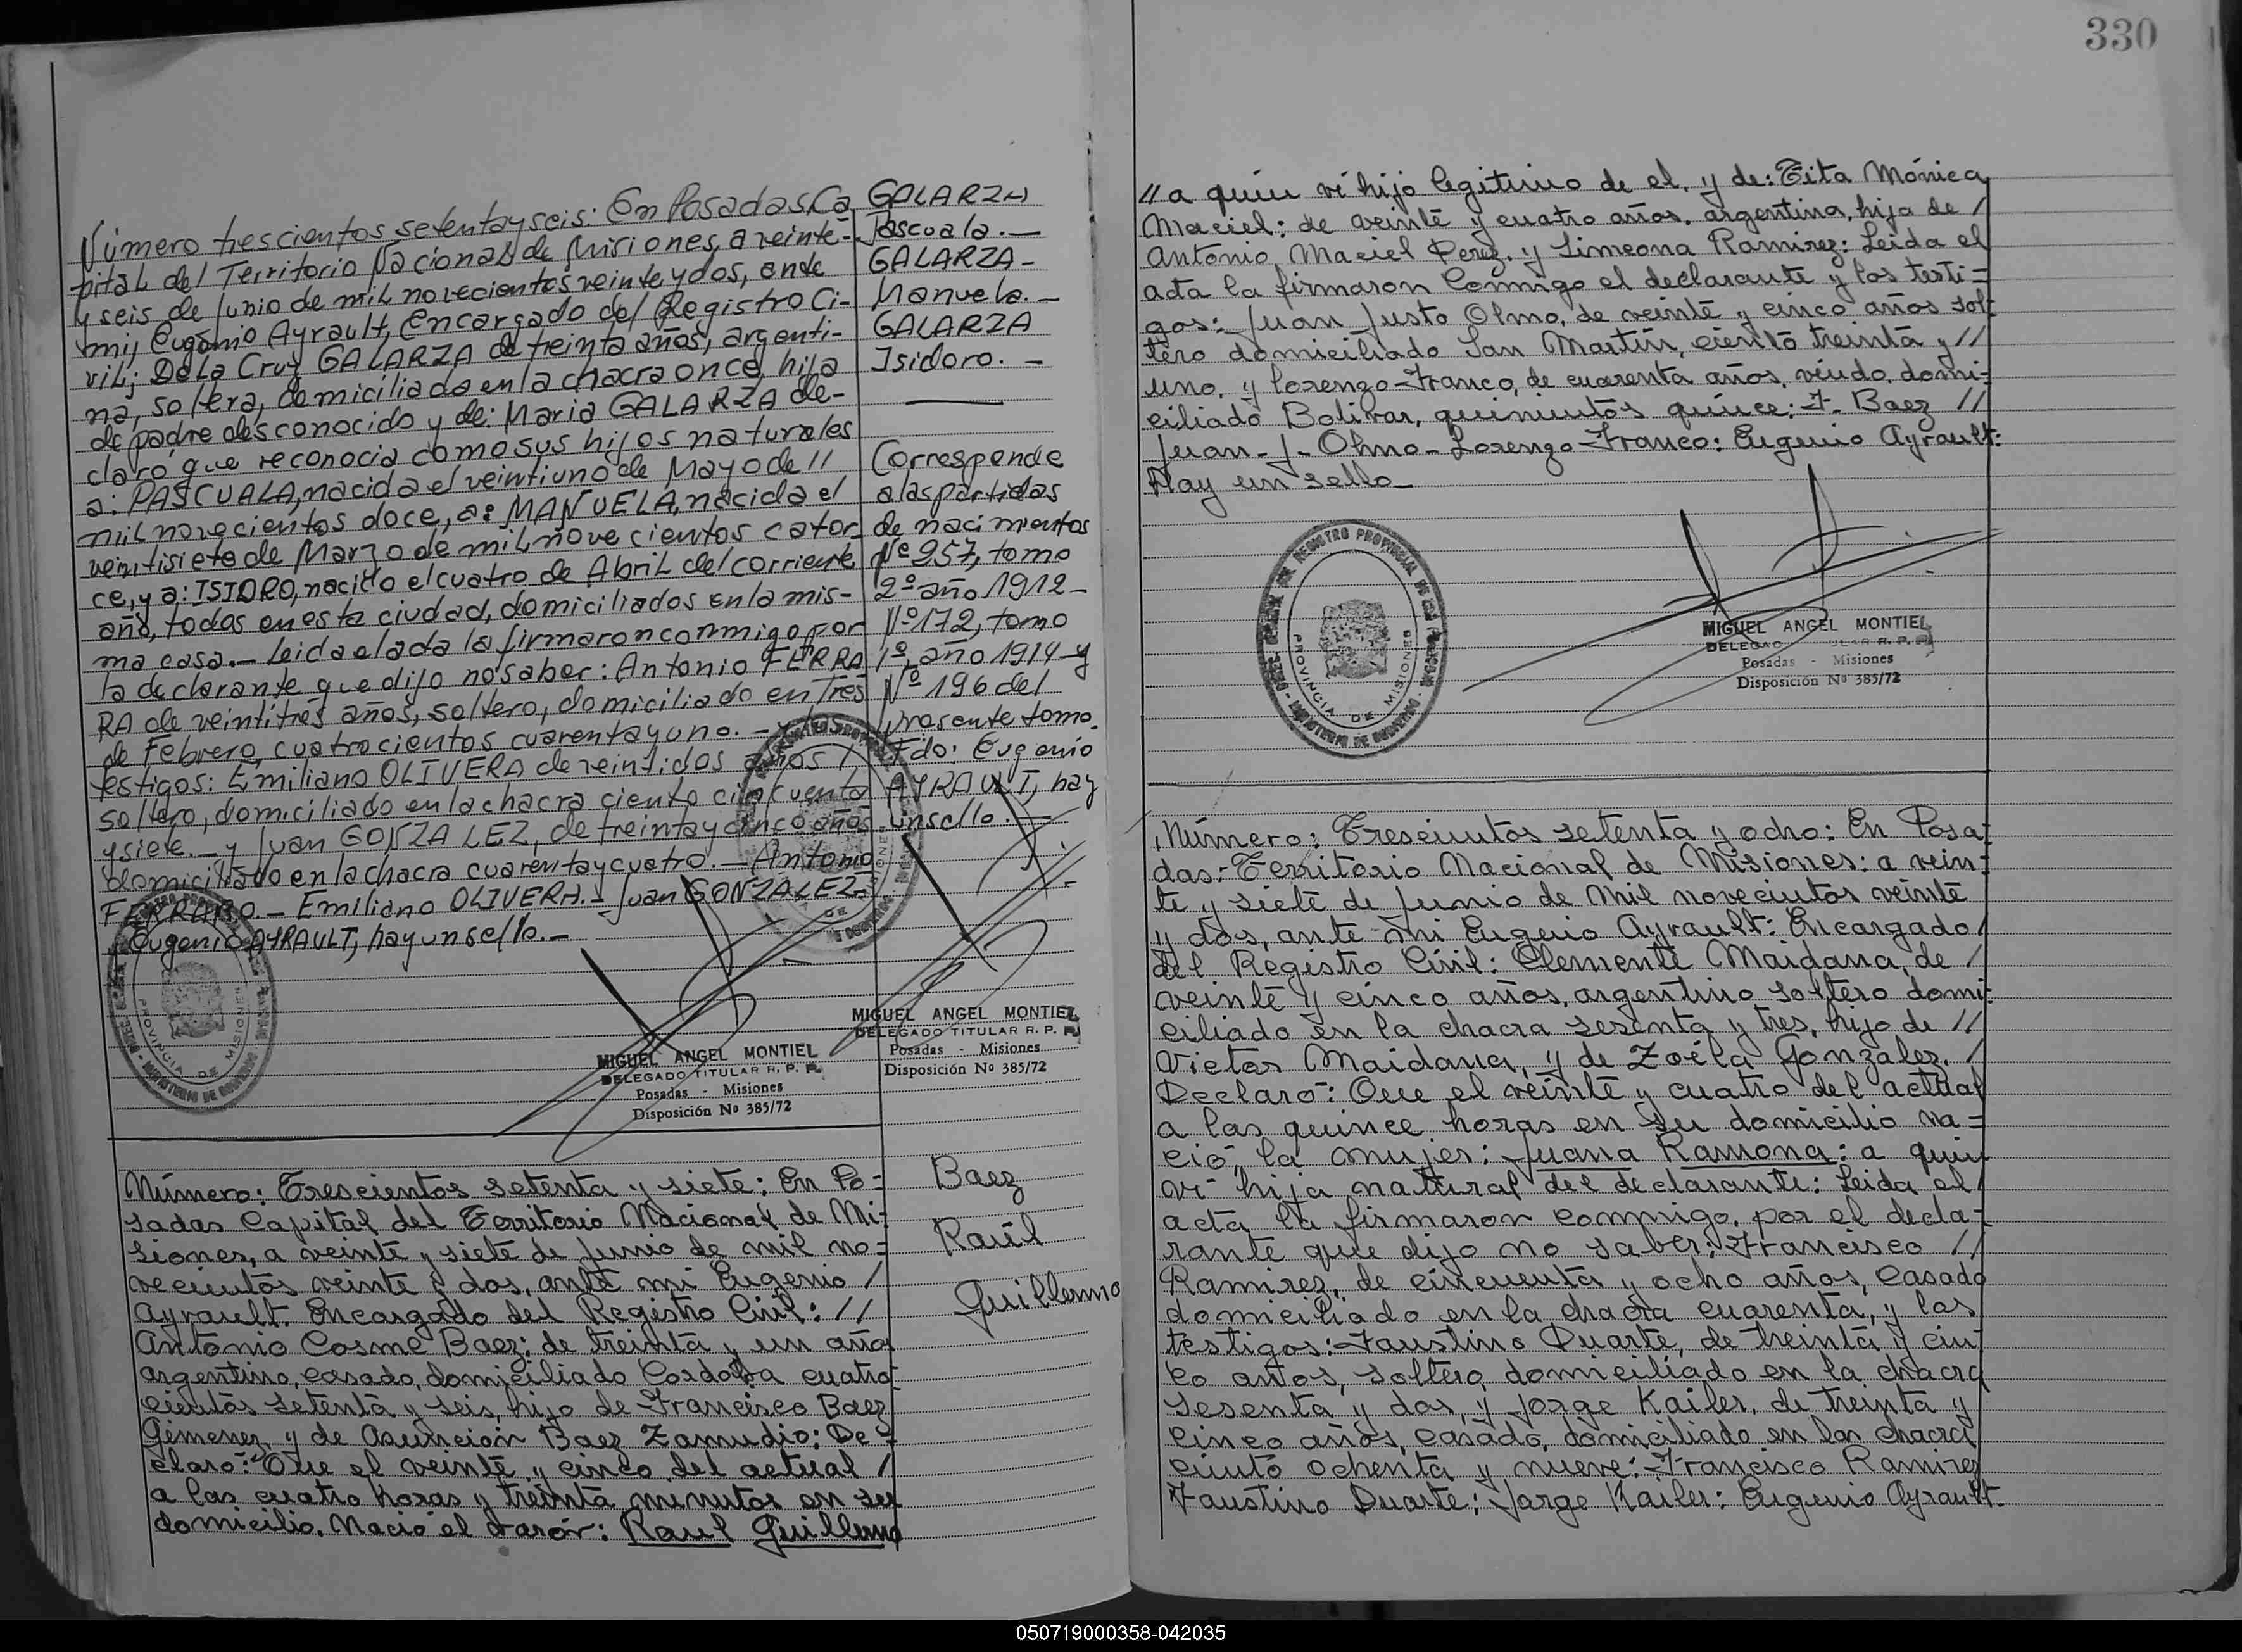 330
Número trescientos setenta y seis: En Posadas, Ca
pital del Territorio Nacional de Misiones, a veinte-
y seis de Junio de mil novecientos veinte y dos, ante
mi, Eugenio Ayrault, Encargado del Registro Ci-
vil; De la Cruz GALARZA de treinta años, argenti-
na, soltera, domiciliada en la chacra once, hija
de padre desconocido y de: Maria GALARZA de-
claró que reconocia como sus hijos naturales
a: PASCUALA, nacida el veintiuno de Mayo de //
mil novecientos doce, a: MANUELA, nacida el
veintisiete de Marzo de mil nove cientos cator-
ce, y a: ISIDRO, nacido el cuatro de Abril del corriente
año, todos en esta ciudad, domiciliados en la mis-
ma casa.- Leida el ada la firmaron conmigo por
la declarante que dijo no saber: Antonio FERRA
RA de veintitrés años, soltero, domiciliado en Tres
de Febrero, cuatrocientos cuarenta y uno. - y los
testigos: Emiliano OLIVERA de veintidos años /
soltero, domiciliado en la chacra ciento cincuenta
y siete. - y Juan GONZALEZ, de treinta y cinco años
domiciliado en la chacra cuarenta y cuatro. - Antonio
FERRARO. - Emiliano OLIVERA. - Juan GONZALEZ
Eugenio AYRAULT, hay un sello. -
GALARZA
Pascuala. -
GALARZA -
Manuela. -
GALARZA
Isidoro. -
Corresponde
a las partidas
de nacimientos
Nº 257, tomo
2º año 1912 -
Nº 172, tomo
1º, año 1914 - y
Nº 196 del
presente tomo.
Fdo: Eugenio
AYRAULT, hay
un sello. -
PROVINCIA DE MISIONES
MIGUEL ANGEL MONTIEL
DELEGADO TITULAR R. P. P.
Posadas - Misiones
Disposición Nº 385/72
MIGUEL ANGEL MONTIEL
DELEGADO TITULAR R. P. P.
Posadas - Misiones
Disposición Nº 385/72
Número: Trescientos setenta y siete: En Po=
sadas Capital del Territorio Nacional de Mi=
siones, a veinte y siete de Junio de mil no=
vecientos veinte y dos, ante mi Eugenio /
Ayrault. Encargado del Registro Civil: //
Antonio Cosme Baez: de treinta y un años
argentino, casado, domiciliado Cordoba cuatro=
cientos setenta y seis, hijo de Francisco Baez
Gimenez, y de Asunción Baez Zamudio: De=
claro: Que el veinte y cinco del actual /
a las cuatro horas y treinta minutos en su
domicilio. Nació el varón: Raul Guillermo
Baez
Raúl
Guillermo
// a quien ví hijo legitimo de el, y de: Tita Mónica
Maciel: de veinte y cuatro años, argentina, hija de /
Antonio Maciel Perez, y Simeona Ramirez: Leida el
acta la firmaron conmigo el declarante y los testi=
gos: Juan Justo Olmo, de veinte y cinco años sol=
tero domiciliado San Martin, ciento treinta y //
uno, y Lorenzo Franco, de cuarenta años, viudo, domi=
ciliado Bolivar, quinientos quince: A. Baez //
Juan - J - Olmo - Lorenzo Franco: Eugenio Ayrault:
Hay un sello -
PROVINCIA DE MISIONES
MIGUEL ANGEL MONTIEL
Posadas - Misiones
Disposición Nº 385/72
Número: Trescientos setenta y ocho: En Posa=
das: Territorio Nacional de Misiones: a vein=
te y siete de Junio de mil novecientos veinte
y dos, ante mi Eugenio Ayrault: Encargado /
del Registro Civil: Clemente Maidana, de /
veinte y cinco años, argentino, soltero domi=
ciliado en la chacra sesenta y tres, hijo de //
Victor Maidana, y de Zoéla Gonzalez. /
Declaró: Que el veinte y cuatro del actual
a las quince horas en su domicilio na=
ció, la mujer: Juana Ramona: a quien
ví hija natural del declarante: Leida el /
acta la firmaron conmigo, por el decla=
rante que dijo no saber: Francisco //
Ramirez, de cincuenta y ocho años, casado
domiciliado en la chacra cuarenta, y los
testigos: Faustino Duarte, de treinta y cin
co años, soltero domiciliado en la chacra
sesenta y dos, y Jorge Kailer, de treinta y
cinco años, casado, domiciliado en la chacra
ciento ochenta y nueve: Francisco Ramirez
Faustino Duarte: Jorge Kailer: Eugenio Ayrault.
050719000358-042035